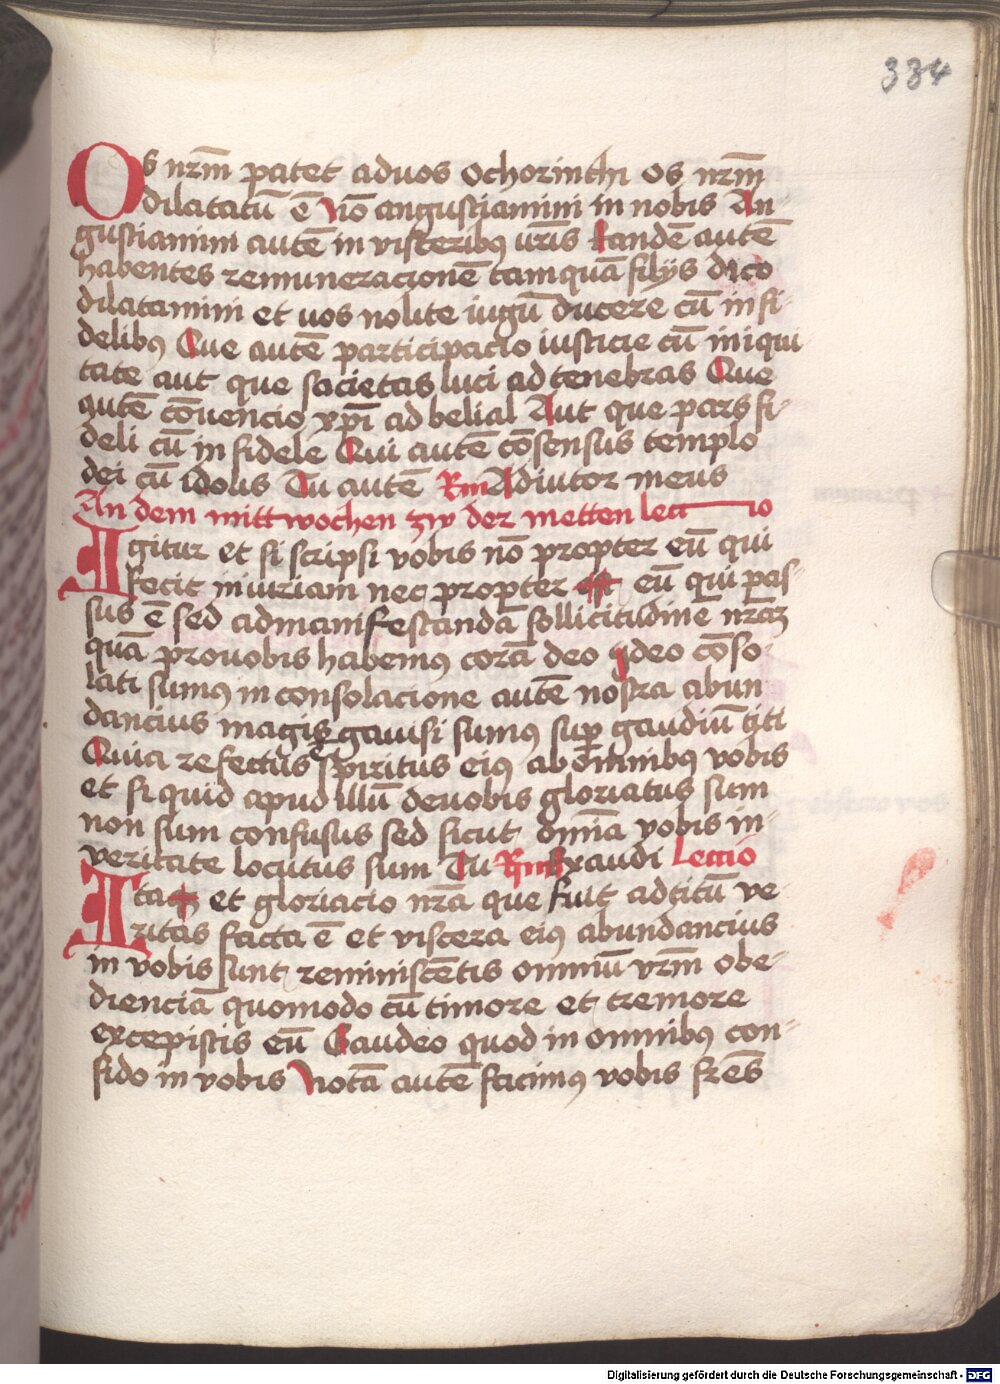 334
Os nr̄m patet ad vos o chorinthi Os nr̄m
dilatatū ē Nō angustiamini in nobis An-
gustiamini autē in visceribꝰ vr̄is Eandē autē
habentes remuneracionē tamquā filys dico
dilatamini et vos nolite iugū ducere cū infi-
delibꝰ Que autē participacio iusticie cū iniqui
tate aut que societas luci ad tenebras Que
autē cōuencio xp̄i ad belial Aut que pars fi-
deli cū infidele Qui autē cōsensus templo
dei cū idolis Tu autē Rm̄ Adiutor meus
An dem mittwochen zw der metten lectio
Igitur et si scripsi vobis nō propter eū qui
fecit iniuriam nec propter eū qui pas-
sus ē sed ad manifestandā sollicitudinē nr̄aꝫ
quā pro vobis habemꝰ corā deo ydeo cōso-
lati sumꝰ in consolacione autē nostra abun
dancius magis gauisi sumꝰ sup̱ gaudiū titi
Quia refectus ē spiritus eiꝰ ab omnibꝰ vobis
et si quid apud illū de vobis gloriatus sum
non sum confusus sed sicut omīa vobis in-
veritate locutus sum Tu Rm̄ Exaudi Lectio
Ita et gloriacio nr̄a que fuit ad titū ve-
ritas facta ē et viscera eiꝰ abundancius
in vobis sunt reminiscētis omniū vr̄m obe-
dienciā quomodo cū timore et tremore
excepistis eū Gaudeo quod in omnibꝰ con-
fido in vobis Notā autē facimꝰ vobis fr̄es
Digitalisierung gefördert durch die Deutsche Forschungsgemeinschaft - DFG